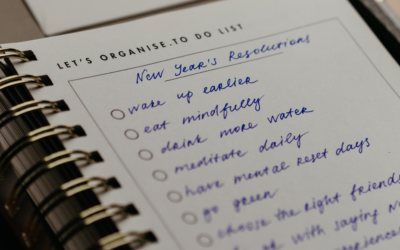 LET'S ORGANISE.TO DO LIST
New Year's Resolutions
wake up earlier
eat mindfully
drink more water
meditate daily
have mental reset days
go green
choose the right friends
ok with saying No